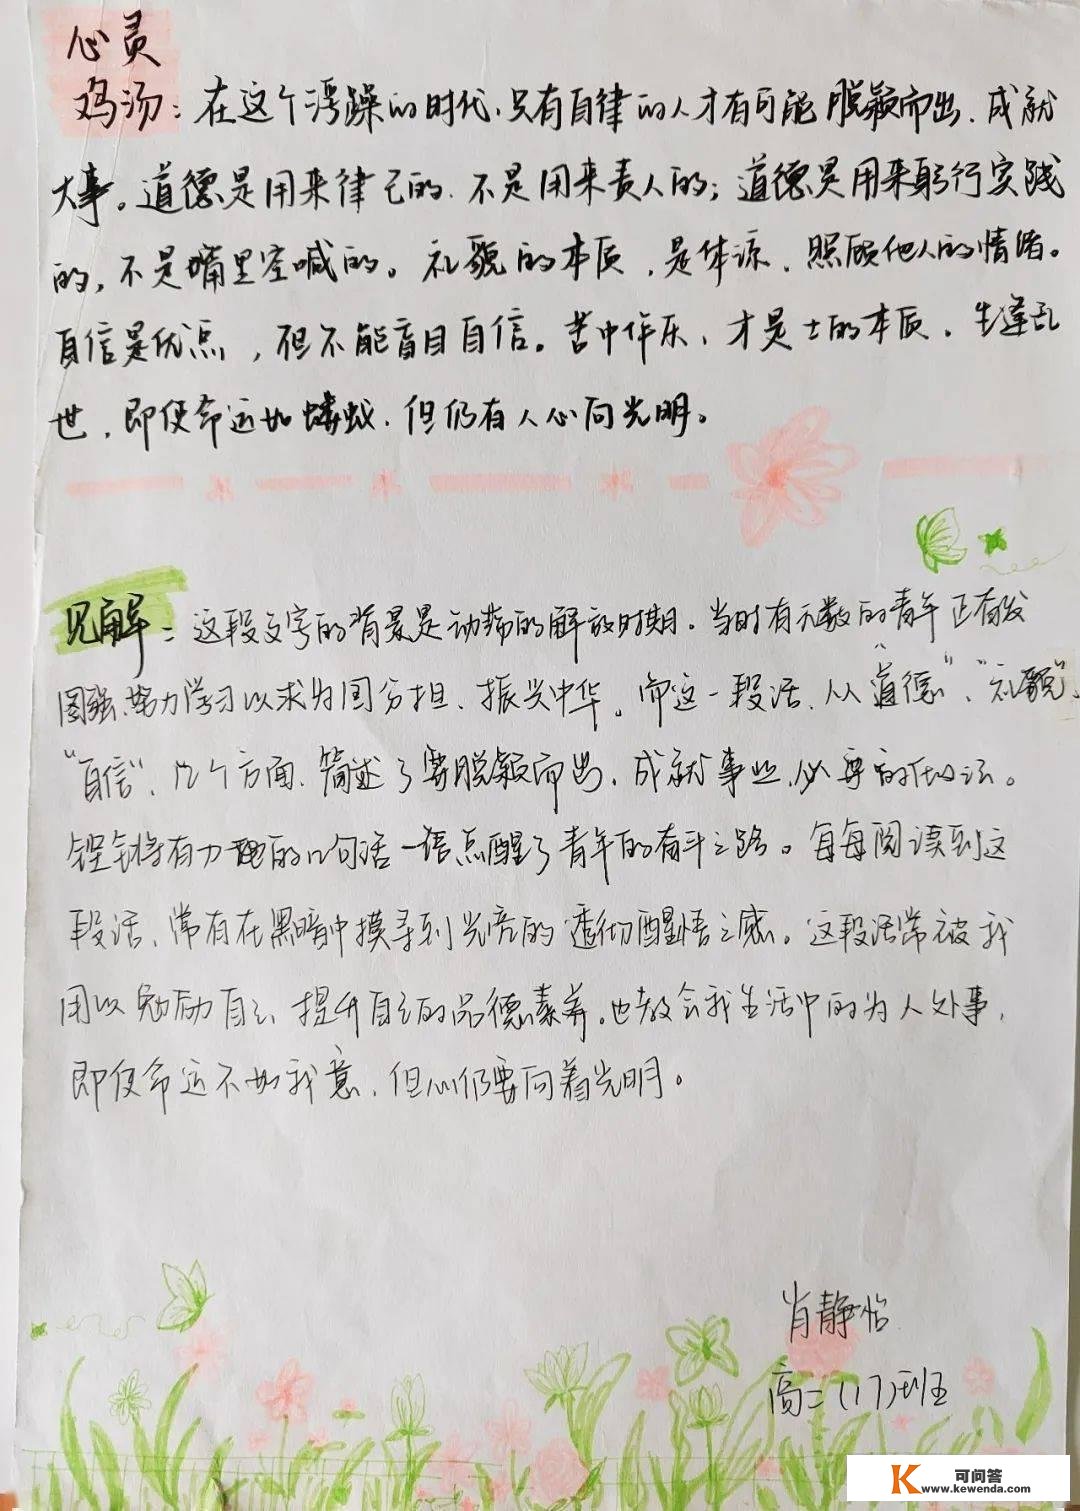 心灵
鸡汤：在这个浮躁的时代，只有自律的人才有可能脱颖而出，成就
大事。道德是用来律己的，不是用来责人的；道德是用来躬行实践
的，不是嘴里空喊的。礼貌的本质，是体谅、照顾他人的情绪。
自信是优点，但不能盲目自信。苦中作乐，才是士的本质。生逢乱
世，即使命运如蝼蚁，但仍有人心向光明。
见解：这段文字的背景是动荡的解放时期。当时有无数的青年正奋发
图强、努力学习以求为国分担、振兴中华。而这一段话，从“道德”、“礼貌”、
“自信”，几个方面，简述了要脱颖而出，成就事业，必要的做法。
铿锵有力的几句话一语点醒了青年的奋斗之路。每每阅读到这
段话，常有在黑暗中摸寻到光亮的透彻醒悟之感。这段话常被我
用以勉励自己、提升自己的品德素养。也教会我生活中的为人处事，
即使命运不如我意，但心仍要向着光明。
肖静怡
高二（17）班
可问答
www.kewenda.com